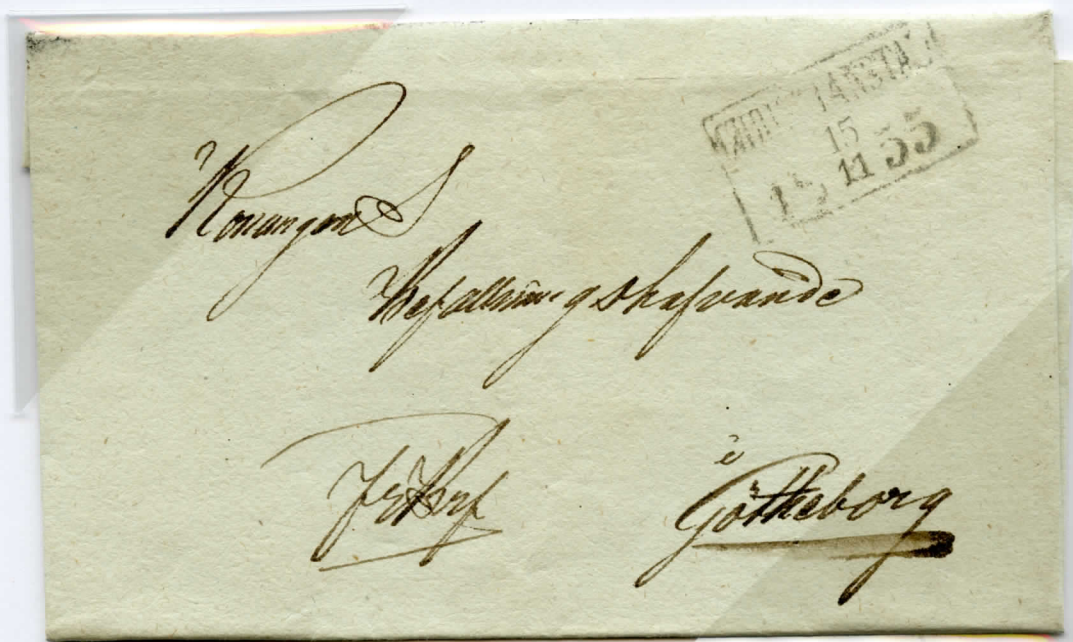 CHRISTIANSTAD
15
11
1855
Konungens
Befallningshafvande
i
Frbref Götheborg